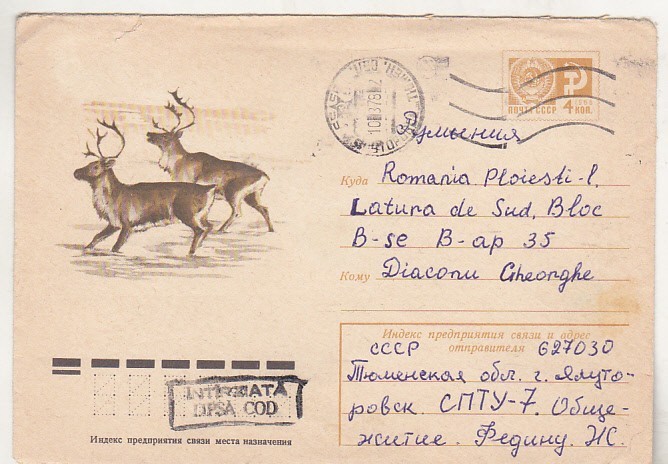 ПОЧТА СССР 4 КОП.
Румыния
Куда Romania Ploiesti-1.
Latura de Sud, Bloc
B-se B-ap 35
Кому Diaconu Gheorghe
Индекс предприятия связи и адрес
отправителя
СССР 627030
Тюменская обл. г. Ялуто-
ровск. СПТУ-7. Обще-
житие. Федину. Н.С.
INTIRZIATA
LIPSA COD
Индекс предприятия связи места назначения